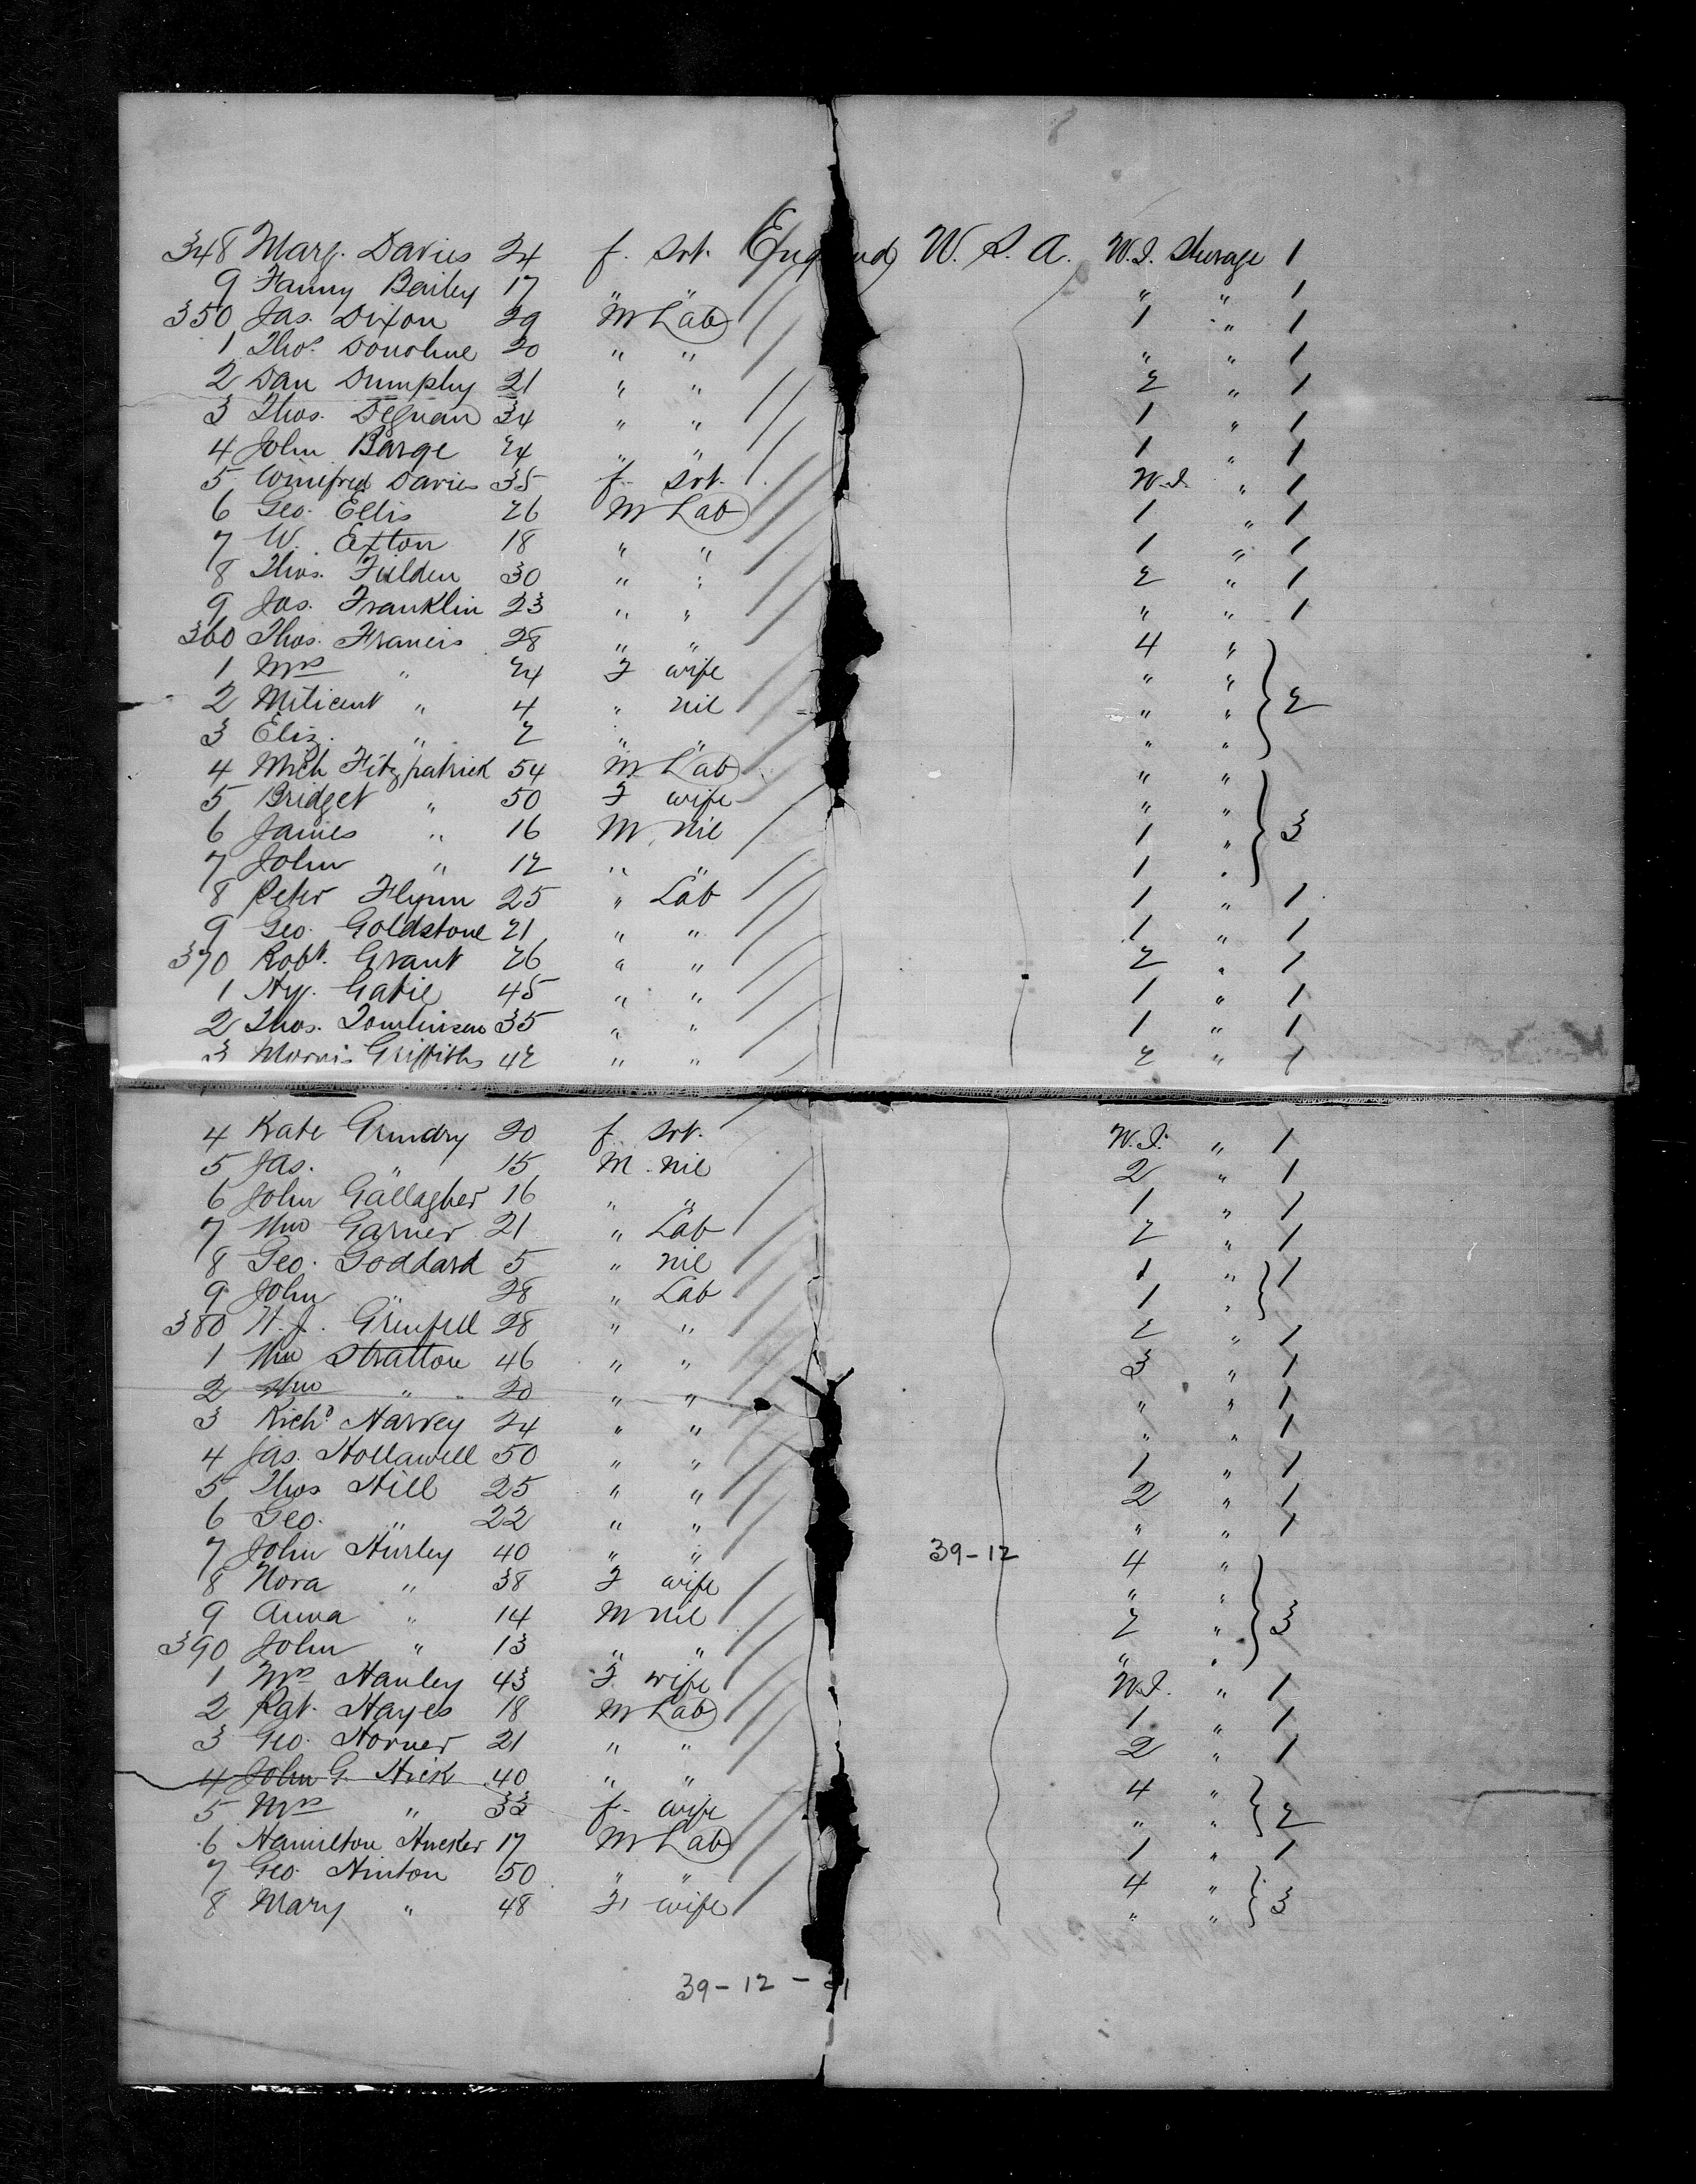 348 Marg. Davies 24 f. Srt. England U.S.A. W.I. Steerage 1
9 Fanny Bailey 17 " " " " 1
350 Jas. Dixon 29 M Lab 1 " 1
1 Thos. Donohue 20 " " " " 1
2 Dan Dumphy 21 " " 2 " 1
3 Thos. Degnan 34 " " 1 " 1
4 John Barge 24 " " 1 " 1
5 Winifred Davies 35 f. Srt. W.I. " 1
6 Geo. Ellis 26 M Lab 1 " 1
7 W. Exton 18 " " 1 " 1
8 Thos. Fielden 30 " " 2 " 1
9 Jas. Franklin 23 " " " " 1
360 Thos. Francis 28 " " 4 "
1 Mrs " 24 F wife " "
2 Milicent " 4 " nil " " 2
3 Eliz. " 2 " " " "
4 Mich Fitzpatrick 54 M Lab " "
5 Bridget " 50 F wife " "
6 James " 16 M nil 1 " 3
7 John " 12 " " 1 "
8 Peter Flynn 25 " Lab 1 " 1
9 Geo. Goldstone 21 " " 1 " 1
370 Robt. Grant 26 " " 2 " 1
1 Hy. 45 " " 1 " 1
2 Thos. Tomlinson 35 " " 1 " 1
3 Morris Griffiths 42 " " 2 " 1
4 Kate Grundry 20 f. Srt. W.I. " 1
5 Jas. " 15 M. nil 2 " 1
6 John Gallagher 16 " " 1 " 1
7 Wm Garner 21 " Lab 2 " 1
8 Geo. Goddard 5 " nil 1 " 1
9 John " 28 " Lab 1 "
380 H. J. Grenfell 28 " " 2 " 1
1 Wm Stratton 46 " " 3 " 1
2 Wm " 20 " " " " 1
3 Richd Harvey 24 " " " " 1
4 Jas. Hollawell 50 " " 1 " 1
5 Thos Hill 25 " " 2 " 1
6 Geo. " 22 " " " " 1
7 John Hurley 40 " " 39-12 4 "
8 Nora " 38 F wife " "
9 Anna " 14 M nil 2 " 3
390 John " 13 " " " "
1 Mrs Hanley 43 F wife W.I. " 1
2 Pat. Hayes 18 M Lab 1 " 1
3 Geo. Horner 21 " " 2 " 1
4 John G. Hick 40 " " 4 "
5 Mrs " 33 f. wife " " 2
6 Hamilton Hucker 17 M Lab 1 " 1
7 Geo Hinton 50 " " 4 "
8 Mary " 48 F. wife " " 3
39-12-